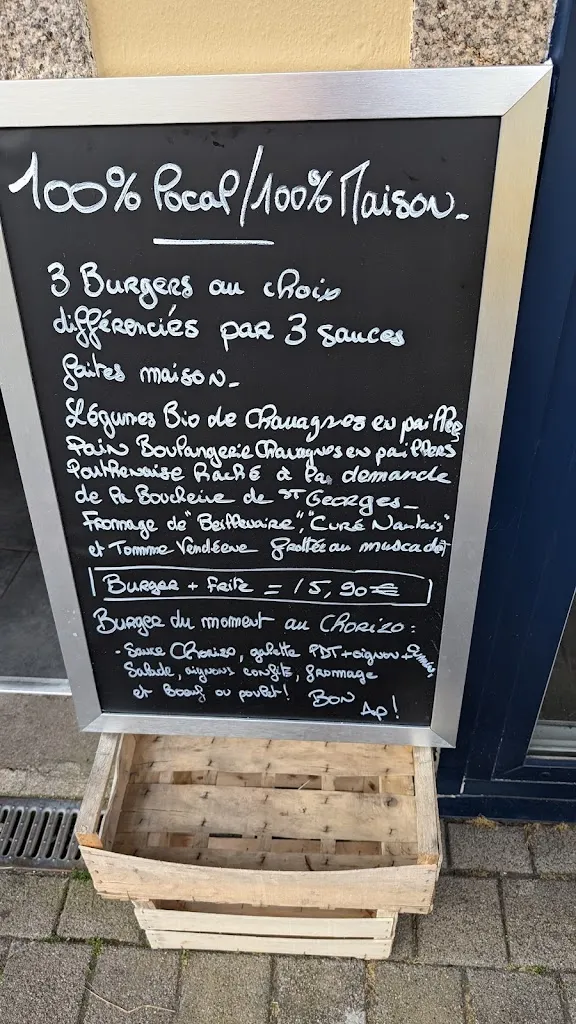 100% local/100% Maison_
3 Burgers au choix
différenciés par 3 sauces
faites maison_
Légumes Bio de Chavagnes en paillers
Pain Boulangerie Chavagnes en paillers
Parthenaise Haché à la demande
de la Boucherie de St Georges_
Fromage de "Beillevaire", "Curé Nantais"
et Tomme Vendéene frottée au muscadet
Burger + frite = 15,90€
Burger du moment au Chorizo :
- Sauce Chorizo, galette PDT + oignon +
Salade, oignons confits, fromage
et Boeuf ou poulet! Bon
Ap!